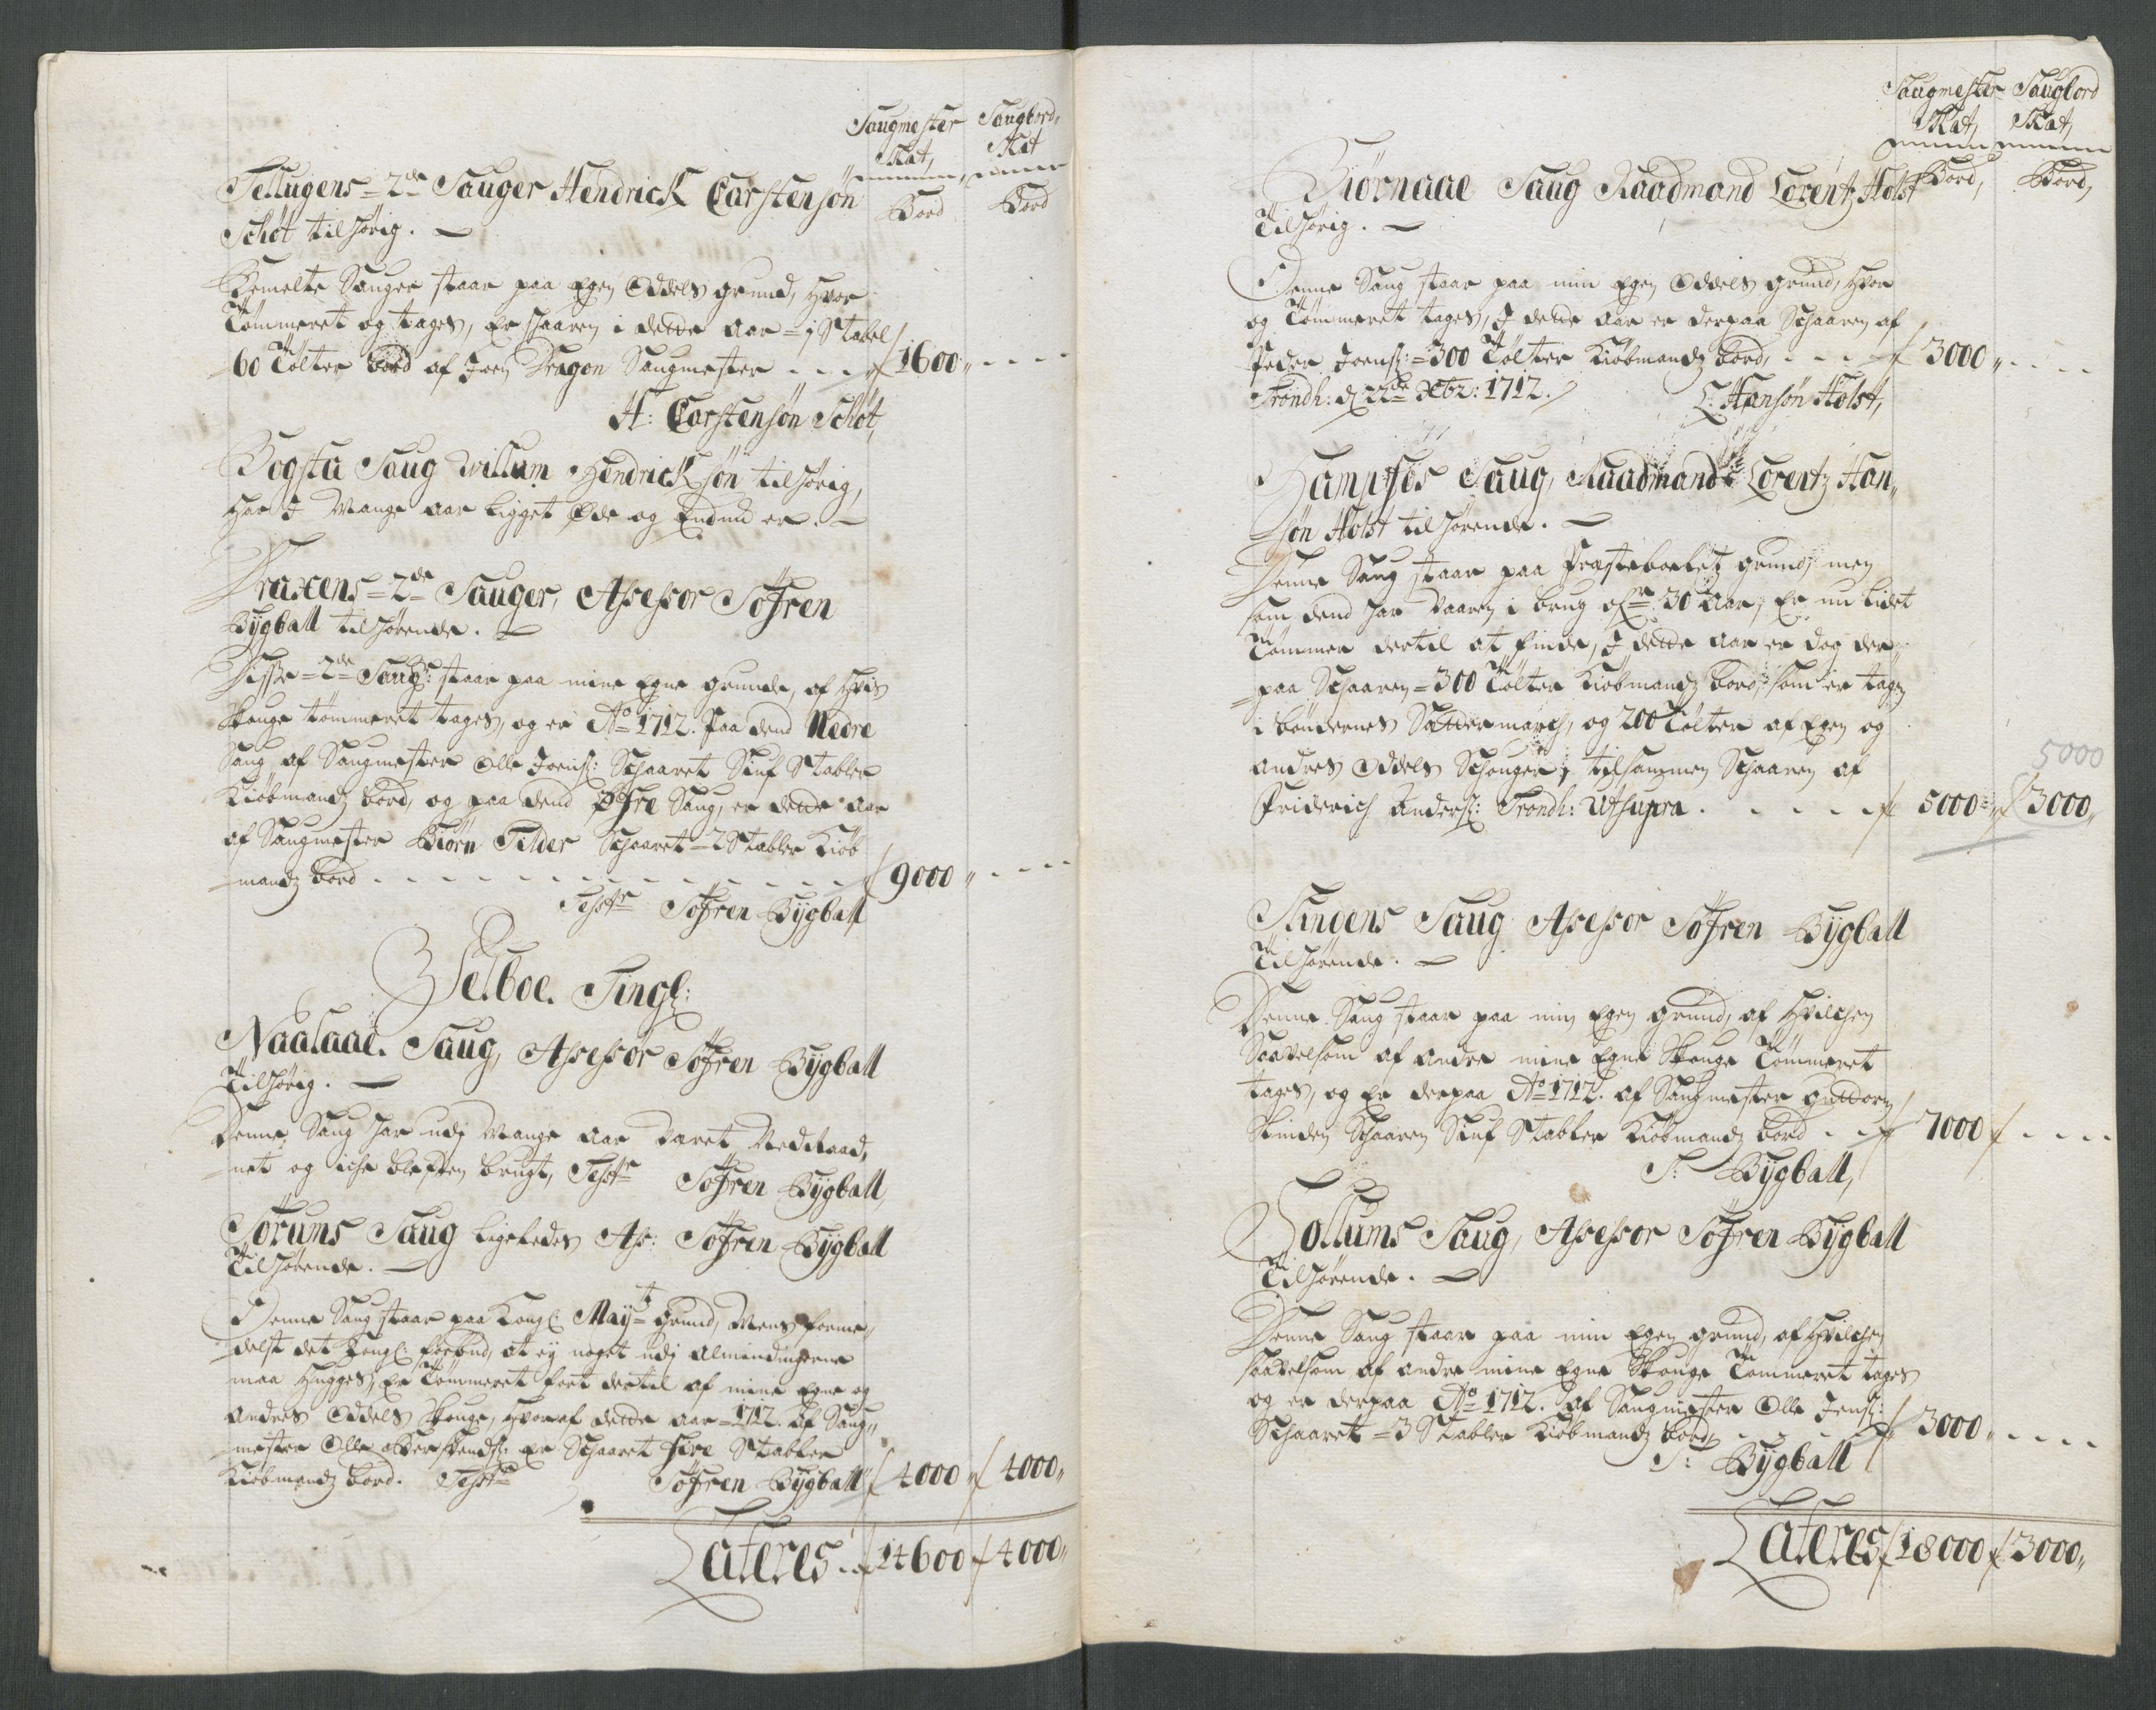 Saugmester Saugbord
Skat, Skat
Bord Bord
Tellugens = 2de Sauger Hendrick Carstensøn
Schøt tilhørig.
Bemelte Sauger staar paa Egen Oddels grund, hvor
Tømmeret og tages, Er schaaren i dette aar = 1 Stabel
60 Tolter bord af Joen Dragon Saugmester - - - 1600 - - - -
H: Carstensøn Schøt,
Bogsta Saug Willum Hendricksøn tilhørig,
har I Mange aar ligget Øde og Endnu er.
Draxens = 2de Sauger, Assessor Søfren
Bygball tilhørende.
Disse = 2de Saug: staar paa mine Egne grunde, af hvis
Skouge tømmeret tages, og er Ao 1712. Paa dend Nedre
Saug af Saugmester Olle Joens: Schaaret Siuf Stabler
Kiøbmands bord, og paa dend Øfre Saug, er dette aar
af Saugmester Biørn Tilder Schaaret = 2 Stabler Kiøb
mands bord - - - - - - - - - - 9000 - - -
Testr Søfren Bygball
Selboe Tingl:
Naalaae. Saug, Assessor Søfren Bygball
Tilhørig.
Denne Saug har udj Mange aar Varet Nedraad,
net og iche blefven brugt, Testr Søfren Bygball,
Sørums Saug ligeledes Ass: Søfren Bygball
Tilhørende.
Denne Saug staar paa Kongl: Mayts grund, Mens forme,,
delst det Kongl: forbud, at ej noget udj Almindingerne
maa hugges, Er Tømmeret kiørt dertil af mine Egne og
andres Oddels Skouge, hvoraf dette aar = 1712. Af Saug,,
mester Olle Er Schaaret fire Stabler
Kiøbmands bord. Testr Søfren Bygball 4000 4000
Lateres. 14600 4000
Saugmester Saugbord
Skat, Skat,
Bord, Bord,
Biørnaae Saug Raadmand Lorentz Holst
Tilhørig.
Denne Saug staar paa min Egen Oddels grund, hvor
og Tømmeret tages, I dette aar er derpaa Schaaren af
Peder Joens: = 300 Tolter Kiøbmands bord, - - - 3000 - - - -
Trondh: d 22de Xbr: 1712. L: Hansøn Holst,
Saug, Raadmand Lorentz Han,,
søn Holst tilhørende.
Denne Saug staar paa Præsteboelets grund, men
som dend har Vaaren i brug ofr 30 Aar, Er nu lidet
Tømmer dertil at finde, I dette aar er dog der
paa Schaaren = 300 Tolter Kiøbmands bord, som er tagen
i bøndernes Sættermarch, og 200 Tolter af Egen og
andres Oddels Schouger, tilsammen Schaaren af
5000
Friderich Anders: Trondh: Utsupra . . . . 5000 3000
Slindens Saug Assessor Søfren Bygball
Tilhørende.
Denne Saug staar paa min Egen grund, af hvilchen
Saavelsom af andre mine Egne Skouge Tømmeret
tages, og Er derpaa Ao 1712. af Saugmester Guttorm
Slinden Schaaren Siuf Stabler Kiøbmands bord - - 7000 - - - -
S: Bygball,
Dollums Saug, Assessor Søfren Bygball
Tilhørende.
Denne Saug staar paa min Egen grund, af hvilchen
saavelsom af andre mine Egne Skouge Tømmeret tages
og er derpaa Ao 1712. Af Saugmester Olle Jens:
Schaaret = 3 Stabler Kiøbmands bord, - - 3000 - - - -
S: Bygball
Lateres 18000 3000